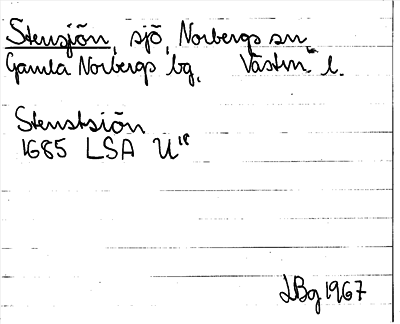 Stensjön, sjö, Norbergs sn
Gamla Norbergs bg, Västm l.
Stenstsiön
1685 LSA U18
LBg 1967